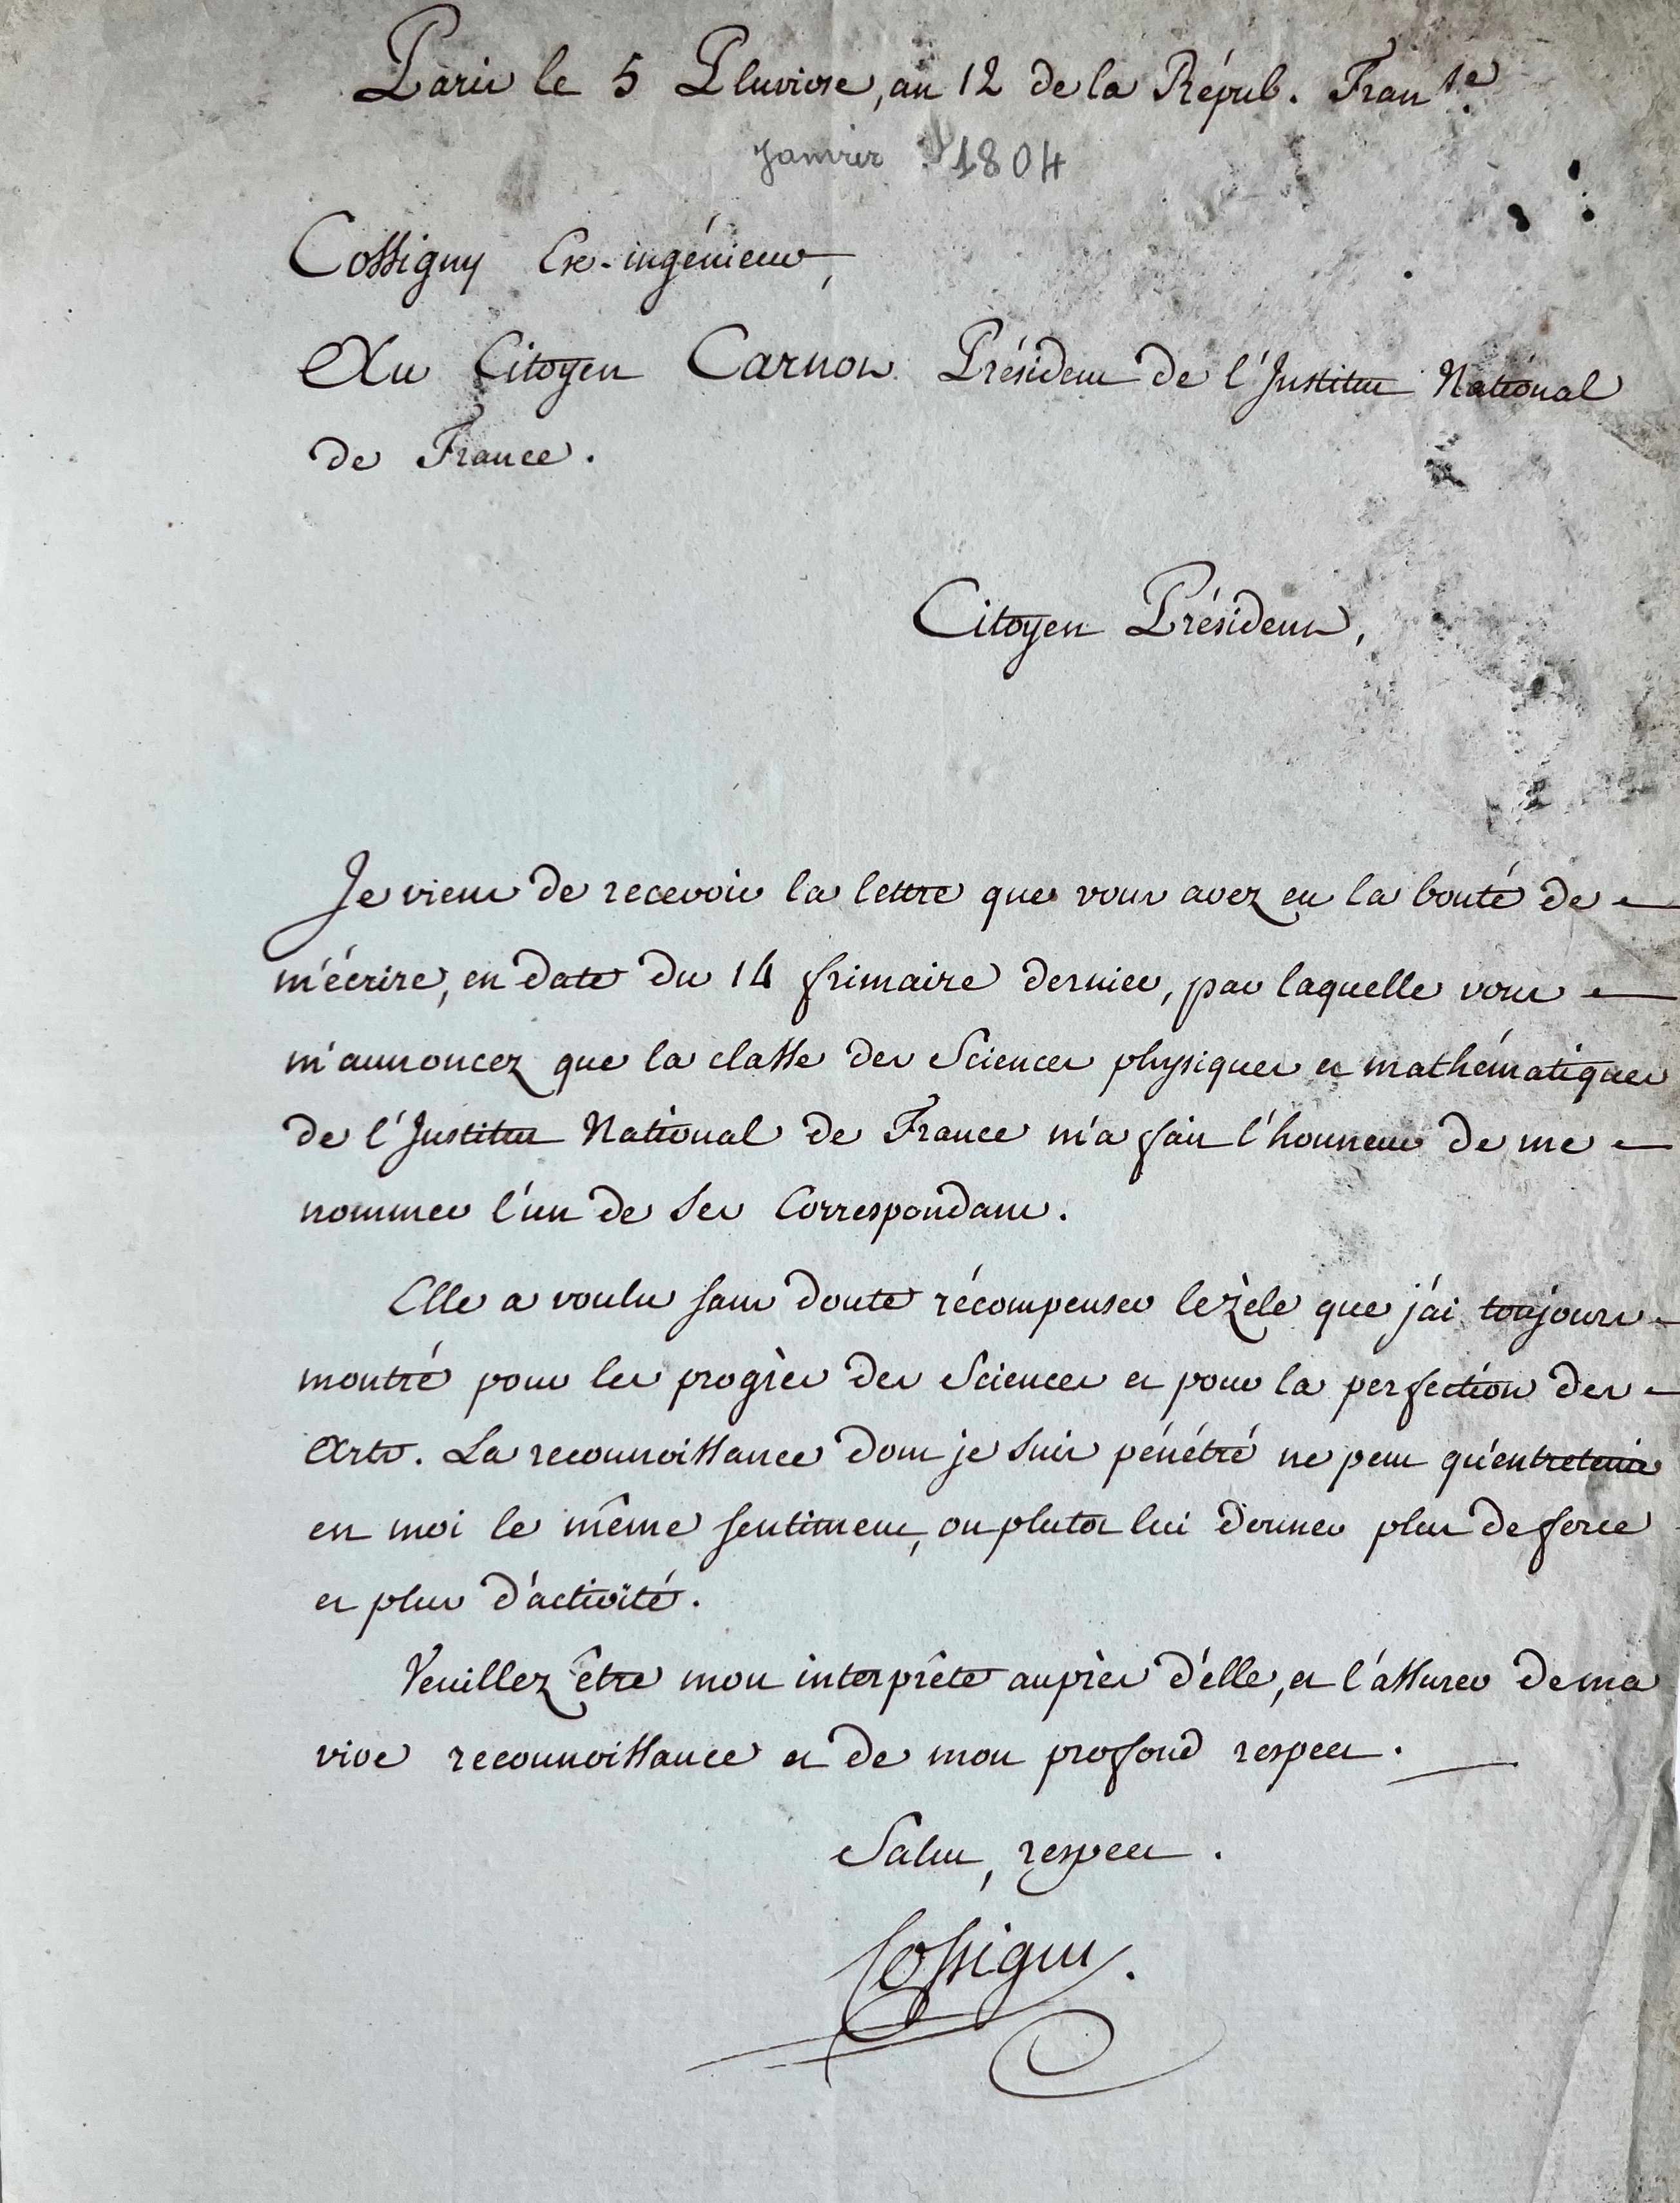 Paris le 5 Pluviose, an 12 de la Répub. Fran.se
Janvier 1804
Cossigny Ex-ingénieur,
Au Citoyen Carnot Président de l'Institut National
de France.
Citoyen Président,
Je viens de recevoir la lettre que vous avez eu la bonté de
m'écrire, en date du 14 frimaire dernier, par laquelle vous
m'annoncez que la classe des Sciences physiques et mathématiques
de l'Institut National de France m'a fait l'honneur de me
nommer l'un de ses Correspondans.
Elle a voulu sans doute récompenser le zèle que j'ai toujours
montré pour les progrès des Sciences et pour la perfection des
Arts. La reconnoissance dont je suis pénétré ne peut qu'entretenir
en moi le même sentiment, ou plutot lui donner plus de force
et plus d'activité.
Veuillez être mon interprête auprès d'elle, et l'assurer de ma
vive reconnoissance et de mon profond respect.
Salut, respect.
Cossigny.